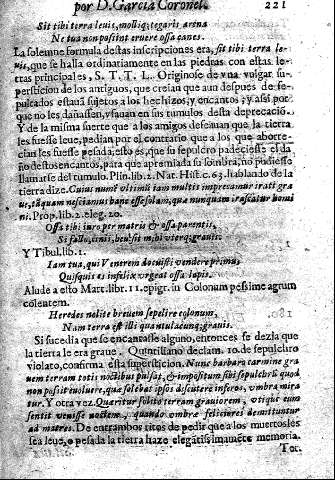 por D. Garcia Coronel. 221
Sit tibi terra leuis, mollique tegaris arena
Ne tua non possint eruere ossa canes.
La solemne formula destas inscripciones era, sit tibi terra le-
uis, que se halla ordinariamente en las piedras con estas le-
tras principales, S. T. T. L. Originose de vna vulgar su-
persticion de los antiguos, que creian que aun despues de se-
pultados estauã sujetos a los hechizos, y encantos; y assi por
que no les dañassen, vsauan en sus tumulos desta deprecaciō.
Y de la misma suerte que a los amigos deseauan que la tierra
les fuesse leue, pedian por el contrario que a los que aborre-
cian les fuesse pesada, esto es, que su sepulcro padeciesse el da
ño destos encantos, para que apremiada su sombra, no pudiesse
llamarse del tumulo. Plin. lib. 2. Nat. Hist. c. 63. hablando de la
tierra dize. Cuius numē vltimū iam multis imprecamur irati gra
ue, tāquam nesciamus hanc esse solam, quæ nunquam irascatur homi
ni. Prop. lib. 2. eleg. 20.
Ossa tibi iuro per matris & ossa parentis,
Si fallo, cinis, heu sit mihi vterq; grauis.
Y Tibul. lib. 1.
Iam tua, qui Venerem docuisti vendere primus,
Quisquis es infelix vrgeat ossa lapis.
Alude a esto Mart. lib. 11. epigr. in Colonum pessime agrum
colentem.
Heredes nolite breuem sepelire colonum,
Nam terra est illi quantulacunq; grauis.
Si sucedia que se encantasse alguno, entonces se dezia que
la tierra le era graue. Quintiliano declam. 10. de sepulchro
violato, confirma esta supersticion. Nunc barbaro carmine gra
uem terram totis noctibus pulsat, & impositum sibi sepulchrū quod
non possit euoluere, quæ solebat ipsos discutere inferos, vmbra mira
tur. Y otra vez. Quæritur solito terram grauiorem, vtique cum
sentit venisse noctem, quando vmbræ feliciores demittuntur
ad matres. De entrambos ritos de pedir que a los muertos les
sea leue, o pesada la tierra haze elegātissima mente memoria.
Ter.